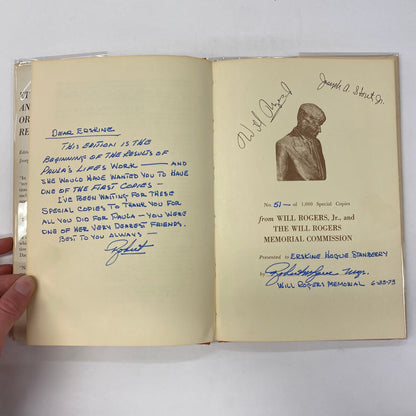 DEAR ERSKINE
THIS EDITION IS THE
BEGINNING OF THE RESULTS OF
PAULA'S LIFE'S WORK — AND
SHE WOULD HAVE WANTED YOU TO HAVE
ONE OF THE FIRST COPIES —
I'VE BEEN WAITING FOR THESE
SPECIAL COPIES TO THANK YOU FOR
ALL YOU DID FOR PAULA — YOU WERE
ONE OF HER VERY DEAREST FRIENDS.
BEST TO YOU ALWAYS —
Robert
Joseph A. Stout, Jr.
No. 51 — of 1,000 Special Copies
from WILL ROGERS, Jr., and
THE WILL ROGERS
MEMORIAL COMMISSION
Presented to ERSKINE HOGUE STANBERRY
by Robert
WILL ROGERS MEMORIAL 6-23-73